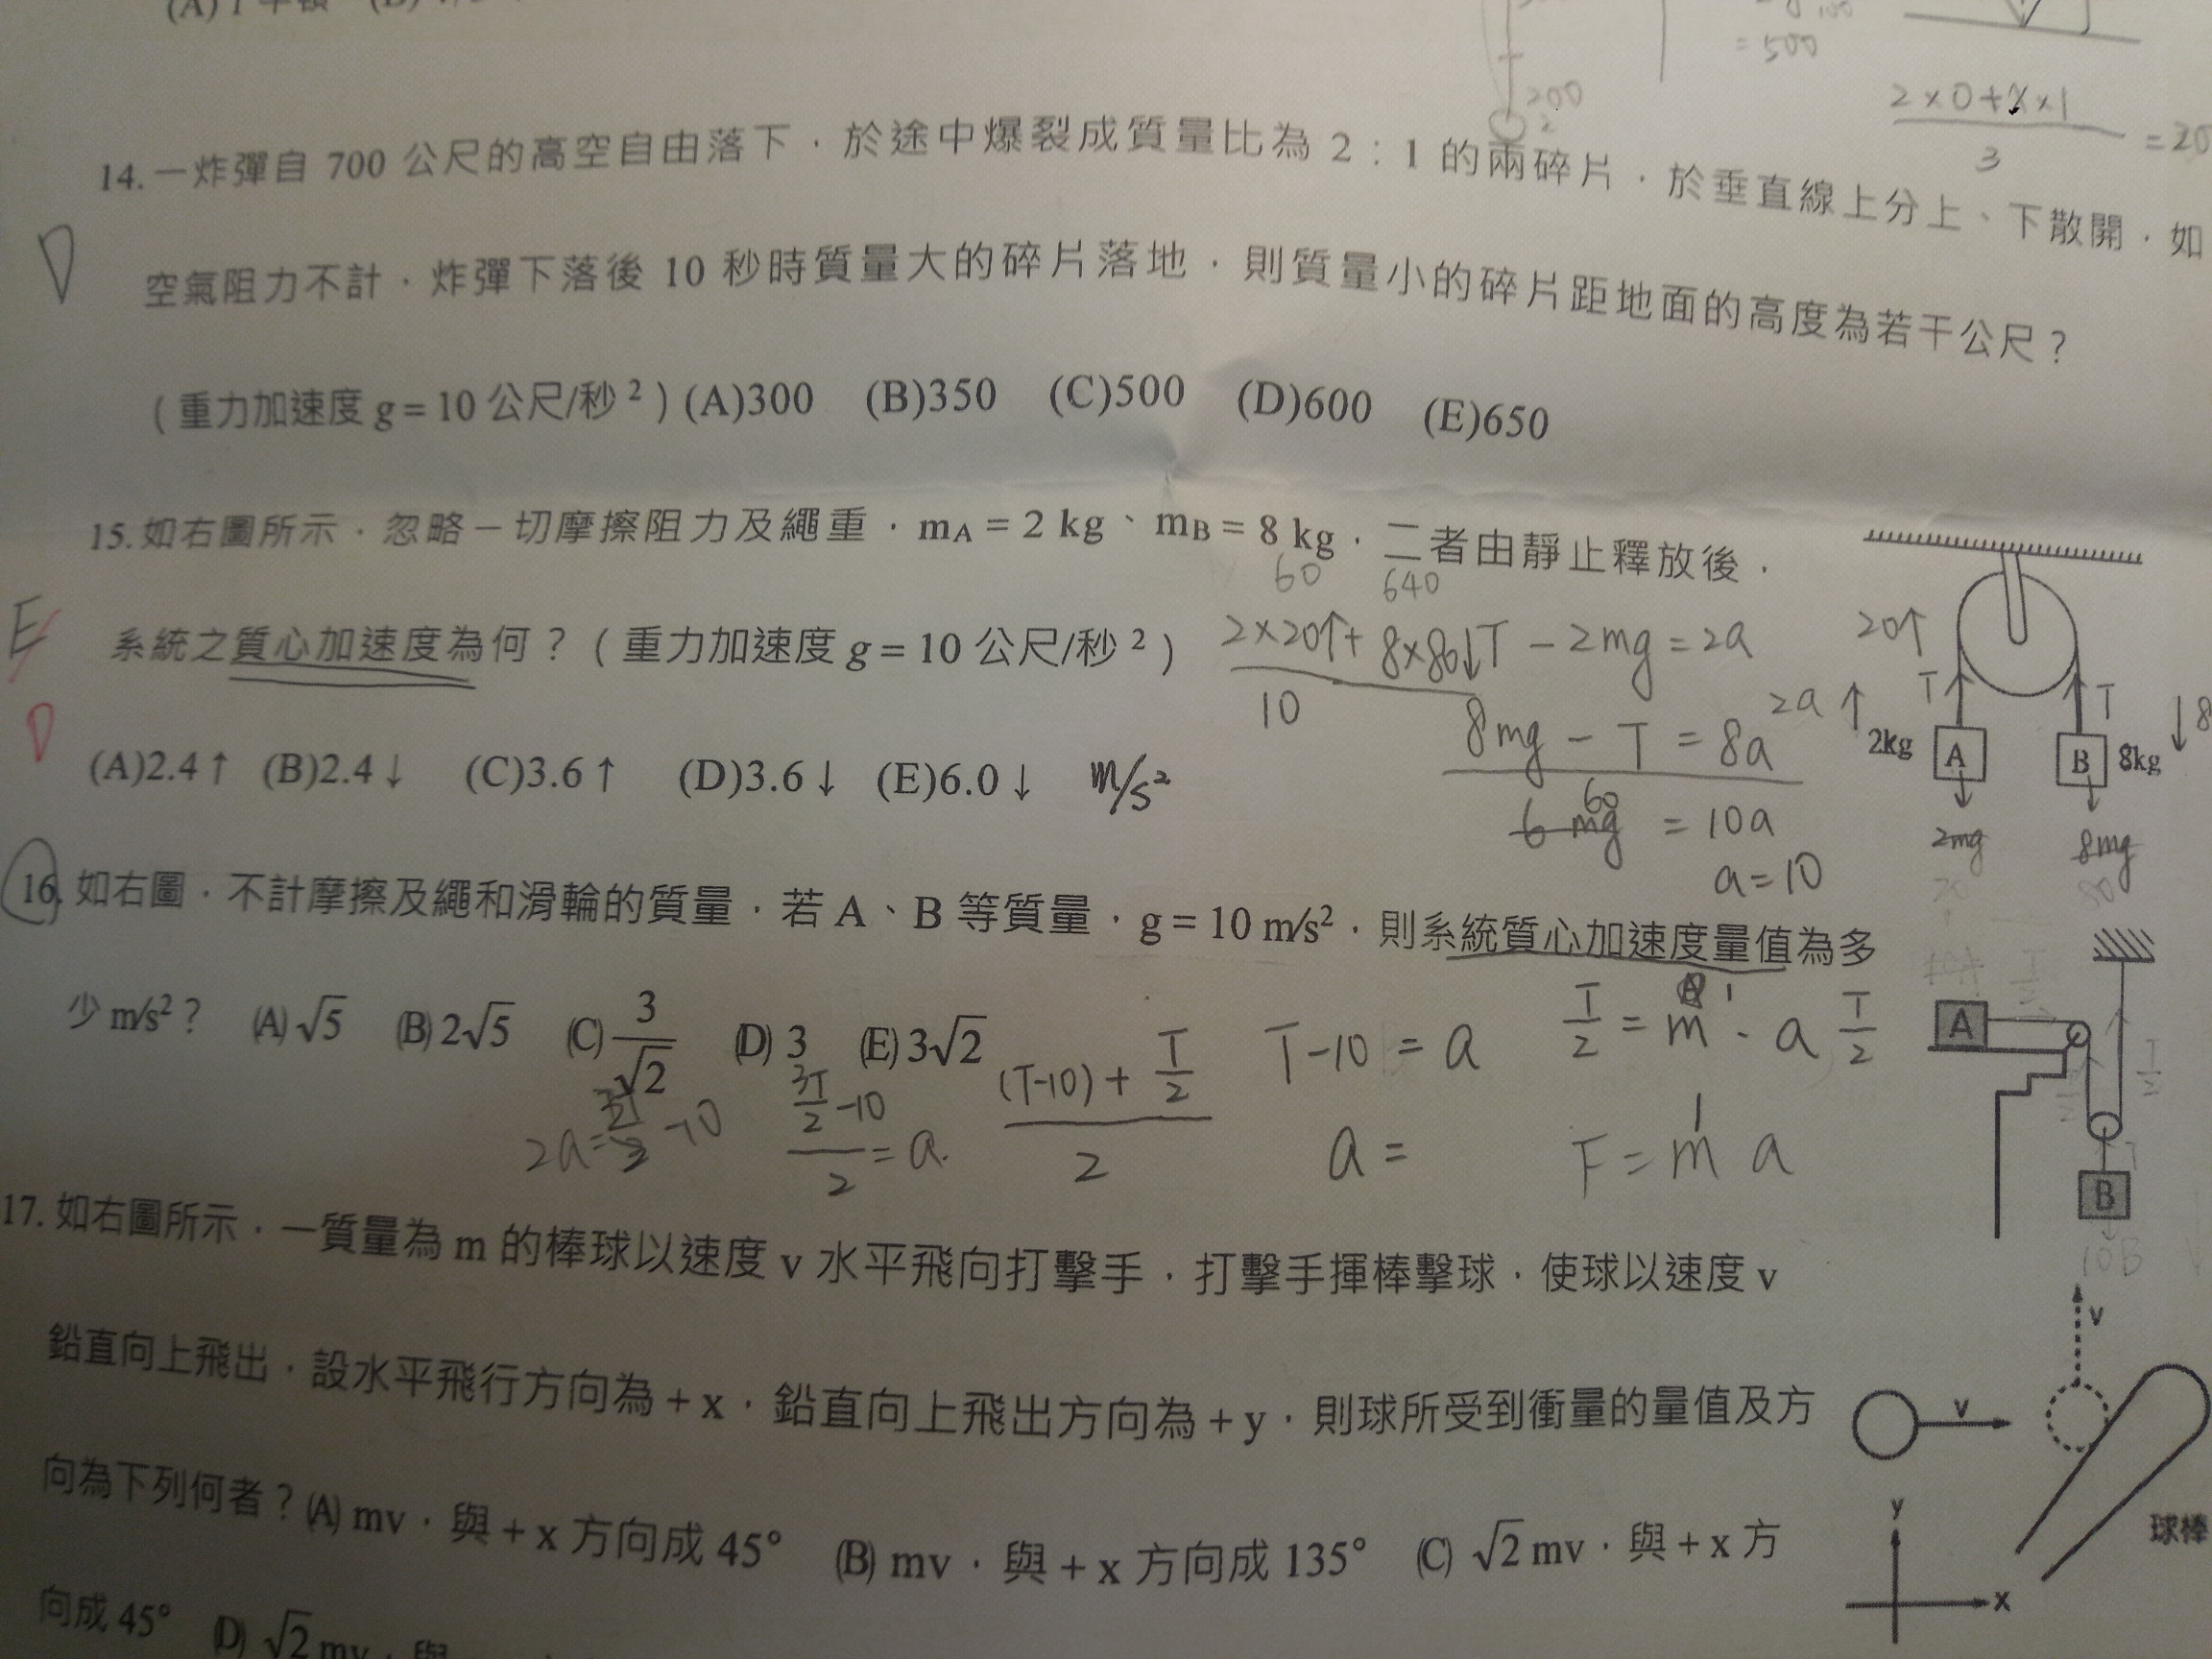 = 500
200
2
2×0+x×1
3
=20
14.一炸彈自 700 公尺的高空自由落下,於途中爆裂成質量比為 2:1 的兩碎片,於垂直線上分上、下散開,如
D
空氣阻力不計,炸彈下落後 10 秒時質量大的碎片落地,則質量小的碎片距地面的高度為若干公尺?
(重力加速度 g = 10 公尺/秒²) (A)300 (B)350 (C)500 (D)600 (E)650
15.如右圖所示,忽略一切摩擦阻力及繩重,mA = 2 kg、mB = 8 kg,二者由靜止釋放後,
60 640
E
系統之質心加速度為何?(重力加速度 g = 10 公尺/秒²)
2×20↑+8×80↓
10
T - 2mg = 2a
8mg - T = 8a
60
6 mg = 10a
a = 10
D
(A)2.4↑ (B)2.4↓ (C)3.6↑ (D)3.6↓ (E)6.0↓ m/s²
20↑
T T
2a↑ ↓8
2kg A B 8kg
2mg 8mg
20 80
16.如右圖,不計摩擦及繩和滑輪的質量,若 A、B 等質量,g = 10 m/s²,則系統質心加速度量值為多
少 m/s²? (A)√5 (B)2√5 (C)3/√2 (D)3 (E)3√2
(T-10)+T/2
2
T-10 = a
T/2 = m·a T/2
1
3T/2 -10
2 = a
a =
F = m a
1
A
T/2
B
10B
17.如右圖所示,一質量為 m 的棒球以速度 v 水平飛向打擊手,打擊手揮棒擊球,使球以速度 v
鉛直向上飛出,設水平飛行方向為 + x,鉛直向上飛出方向為 + y,則球所受到衝量的量值及方
向為下列何者?(A) mv,與 + x 方向成 45° (B) mv,與 + x 方向成 135° (C) √2 mv,與 + x 方
向成 45° (D) √2 mv,與
v
v
球棒
y
x